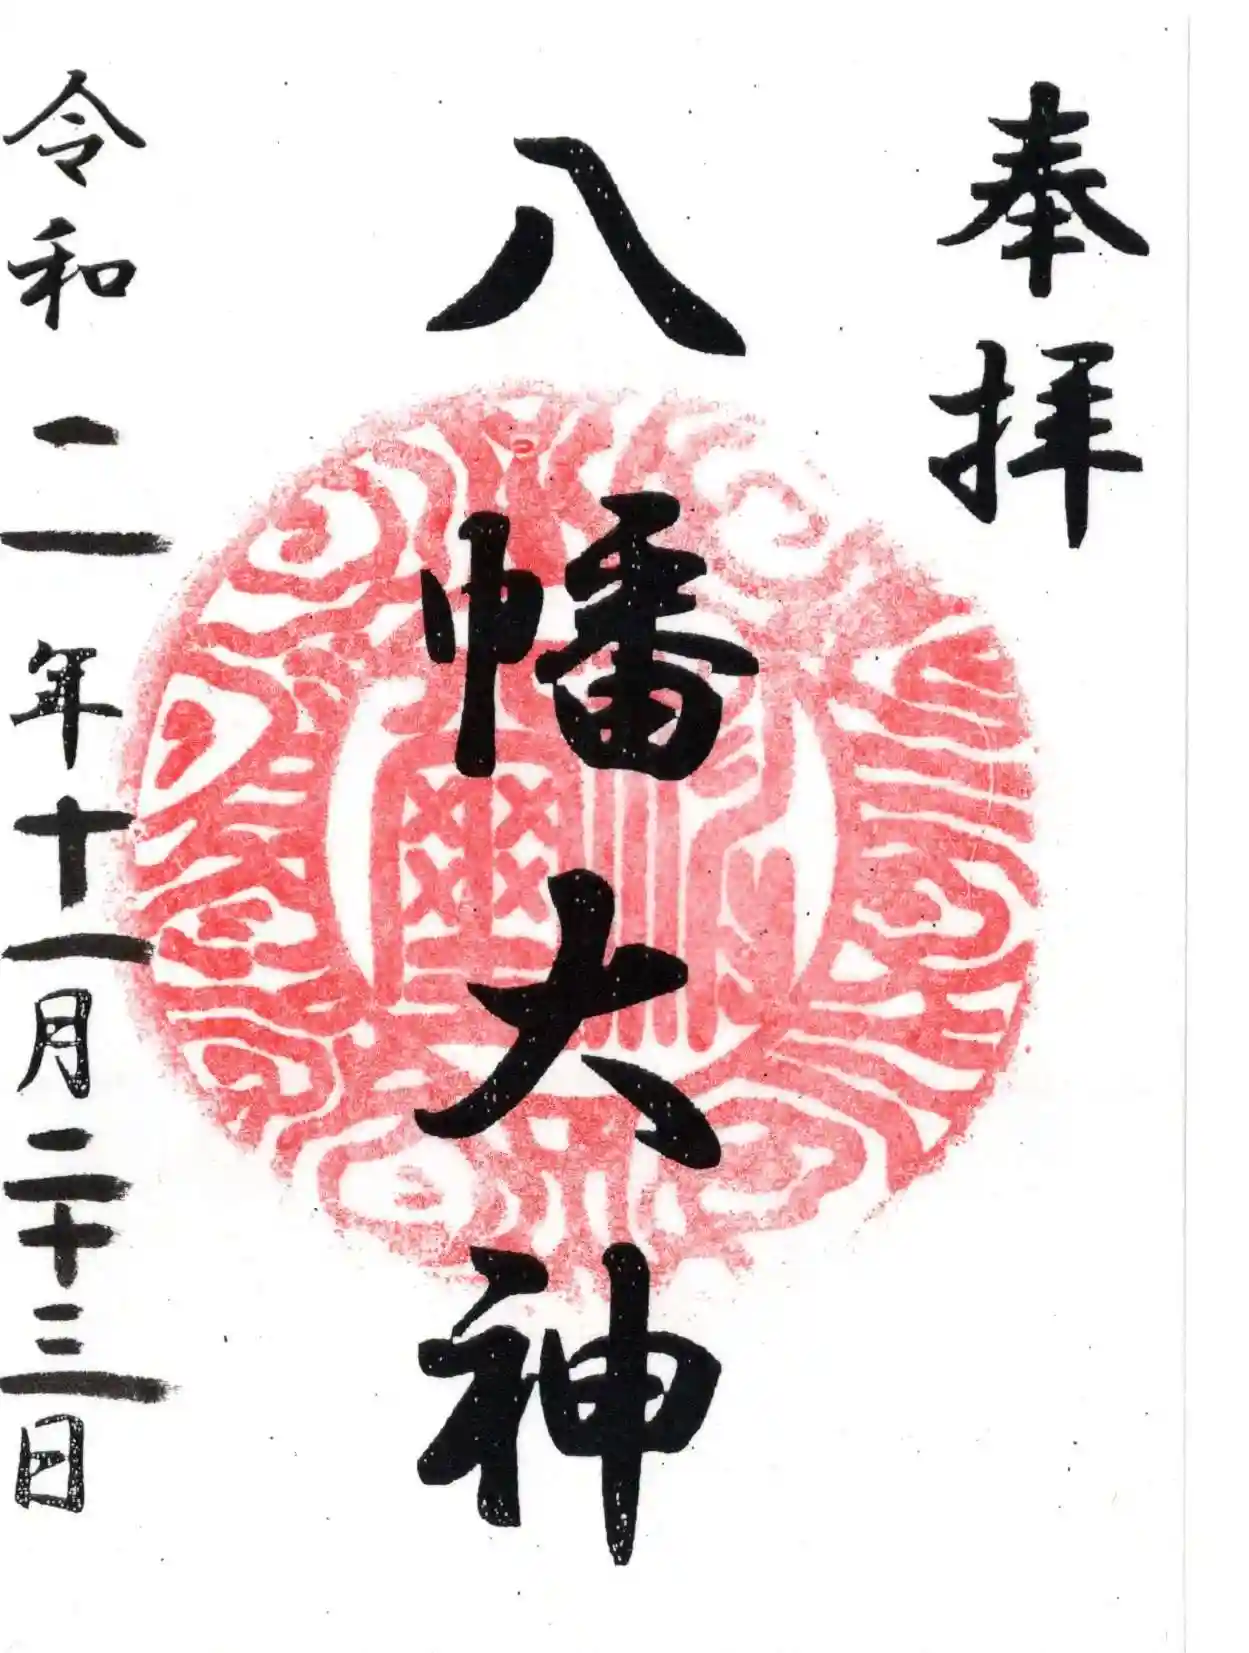 奉拝
八幡大神
令和二年十一月二十三日